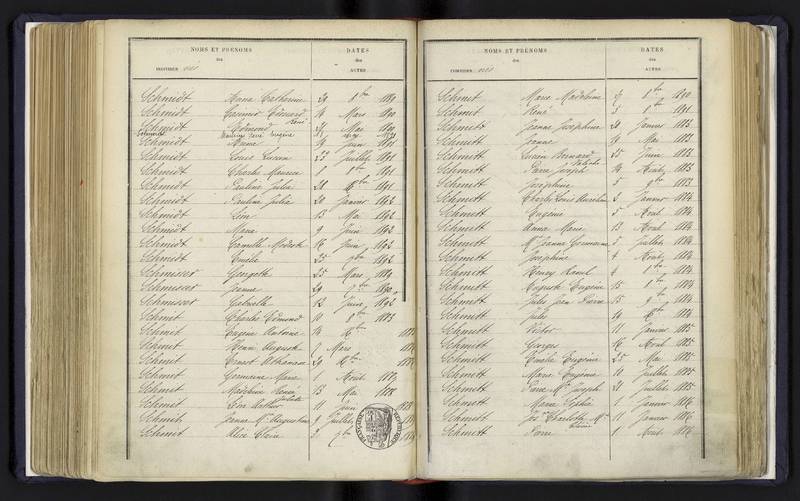 NOMS ET PRÉNOMS
des
INDIVIDUS nés
DATES
des
ACTES
Schmidt Anna Catherine 29 8bre 1890
Schmidt Casimir Edouard 14 Mars 1890
René
Schmidt Edmond Mai 1890
Schmidt René Eugène
Schmidt Anna 19 Juin 1891
Schmidt Louis Lucien 23 Juillet 1891
Schmidt Charles Maurice 1 8bre 1891
Schmidt Pauline Julia 21 Xbre 1891
Schmidt Pauline Julia 20 Janvier 1892
Schmidt Léon 13 Mai 1892
Schmidt Marie 9 Juin 1892
Schmidt Camille Modeste 16 Juin 1892
Schmidt Emélie 25 9bre 1892
Schmisser Georgette 25 Mars 1889
Schmisser Jeanne 29 7bre 1890
Schmisser Gabrielle 12 Juin 1892
Schmit Charles Edmond 10 8bre 1883
Schmit Eugène Antoine 14 Xbre
Schmit Henri Auguste 2 Mars
Schmit Ernest Athanase 29 Xbre
Schmit Germaine Marie 1 Août
Schmit Madeleine Renée 13 Mai 1888
Juliette
Schmit Léon Arthur 11 Juin 1888
Schmit Jeanne Mie Augustine 9 Juillet
Schmit Alice Claire 2 9bre
NOMS ET PRÉNOMS
des
INDIVIDUS nés
DATES
des
ACTES
Schmit Marie Madeleine 27 8bre 1890
Schmit René 3 8bre 1891
Schmitt Jeanne Joséphine 29 Janvier 1883
Schmitt Jeanne 19 Mai 1883
Schmitt Lucien Bernard 25 Juin 1883
Schmitt Pierre Joseph 14 Août 1883
Schmitt Joséphine 5 9bre 1883
Schmitt Charles Louis Aurélien 3 Janvier 1884
Schmitt Eugénie 5 Avril 1884
Schmitt Anna Marie 13 Avril 1884
Schmitt Mie Jeanne Germaine 5 Juillet 1884
Schmitt Joséphine 4 Août 1884
Schmitt Henry Raoul 4 8bre 1884
Schmitt Auguste Eugène 15 8bre 1884
Schmitt Jules Jean Pierre 15 9bre 1884
Schmitt Jules 14 Xbre 1884
Schmitt Victor 11 Janvier 1885
Schmitt Georges 16 Avril 1885
Schmitt Emélie Eugénie 25 Mai 1885
Schmitt Marie Eugénie 10 Juillet 1885
Schmitt Pierre Mie Joseph 21 Juillet 1885
Schmitt Marie Sophie 1 Janvier 1886
Schmitt Charlotte Mie 11 Janvier 1886
Schmitt Pierre 1 Avril 1886